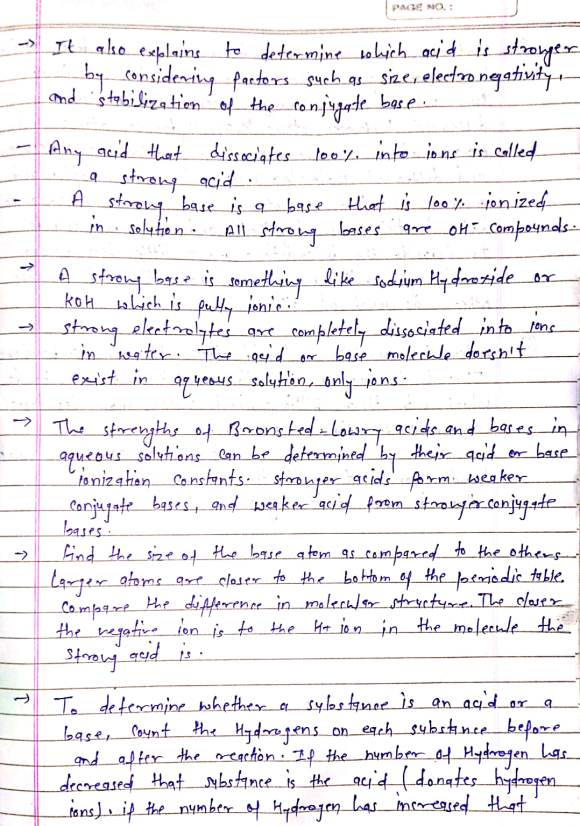 PAGE NO. :
→ It also explains to determine which acid is stronger
by considering factors such as size, electronegativity,
and stabilization of the conjugate base.
- Any acid that dissociates 100% into ions is called
a strong acid.
- A strong base is a base that is 100% ionized
in solution. All strong bases are OH⁻ compounds.
→ A strong base is something like sodium Hydroxide or
KOH which is fully ionic.
→ strong electrolytes are completely dissociated into ions
in water. The acid or base molecule doesn't
exist in aqueous solution, only ions.
→ The strengths of Bronsted-Lowry acids and bases in
aqueous solutions can be determined by their acid or base
ionization constants. stronger acids form weaker
conjugate bases, and weaker acid from stronger conjugate
bases.
→ find the size of the base atom as compared to the others.
Larger atoms are closer to the bottom of the periodic table.
Compare the difference in molecular structure. The closer
the negative ion is to the H+ ion in the molecule the
strong acid is.
→ To determine whether a substance is an acid or a
base, count the Hydrogens on each substance before
and after the reaction. If the number of Hydrogen has
decreased that substance is the acid (donates hydrogen
ions). if the number of Hydrogen has increased that